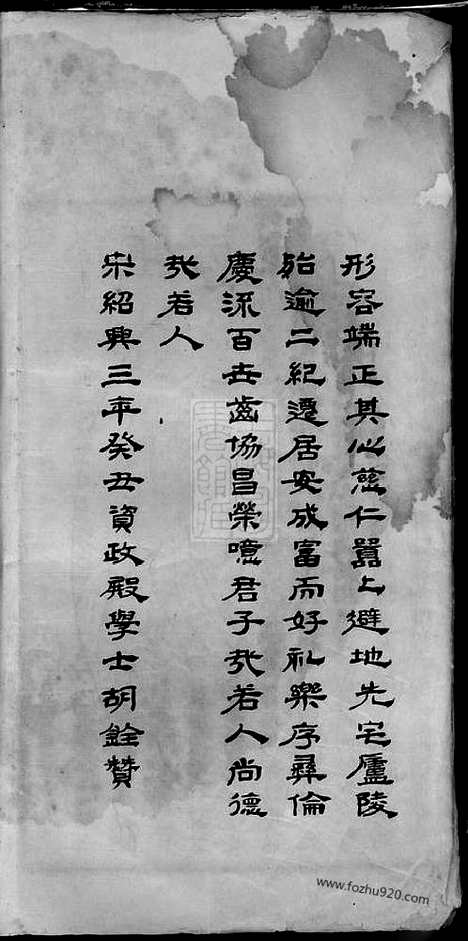 形容端正其心慈仁囂上避地先宅廬陵
貽逾二紀遷居安成富而好礼樂序彝倫
慶流百世齒協昌榮噫君子哉若人尚德
哉若人
宋紹興三年癸丑資政殿學士胡銓贊
www.fozhu920.com